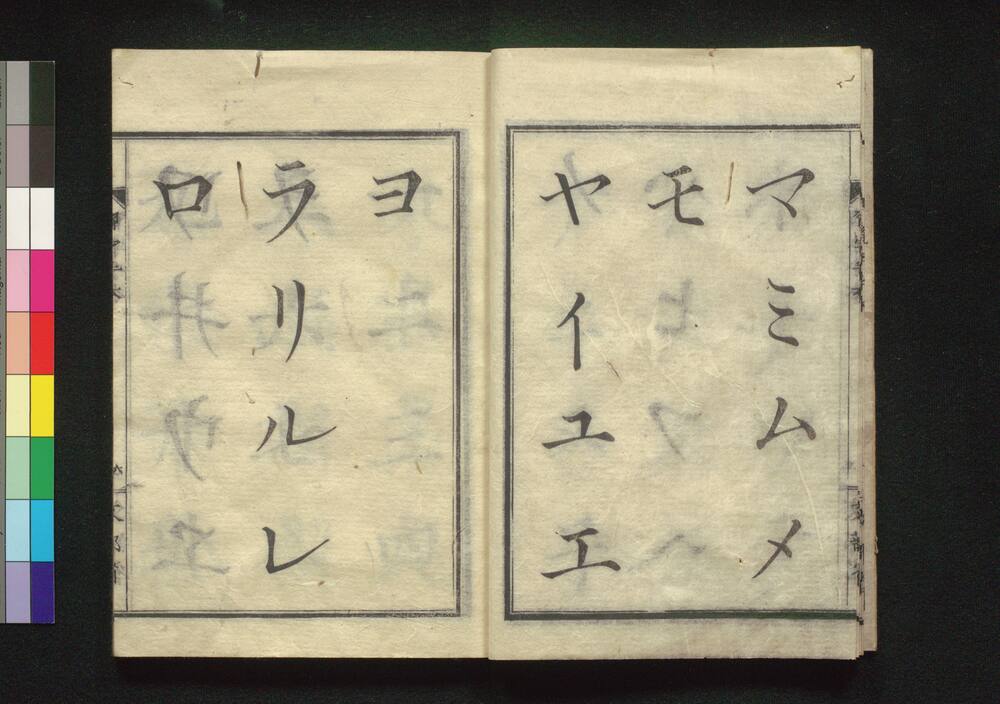 マミムメ
モ
ヤイユエ
ヨ
ラリルレ
ロ